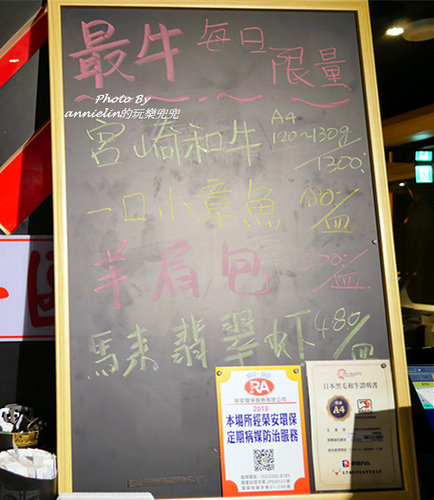 最牛 每日
限量
Photo By
annielin的玩樂兜兜
宮崎和牛 A4
120~130g
/1300.
一口小章魚 180/皿
羊肩包 /皿
馬来翡翠蝦 480/皿
RA
榮安環保服務有限公司
2018
本場所經榮安環保
定期病媒防治服務
日本黑毛和牛證明書
A4